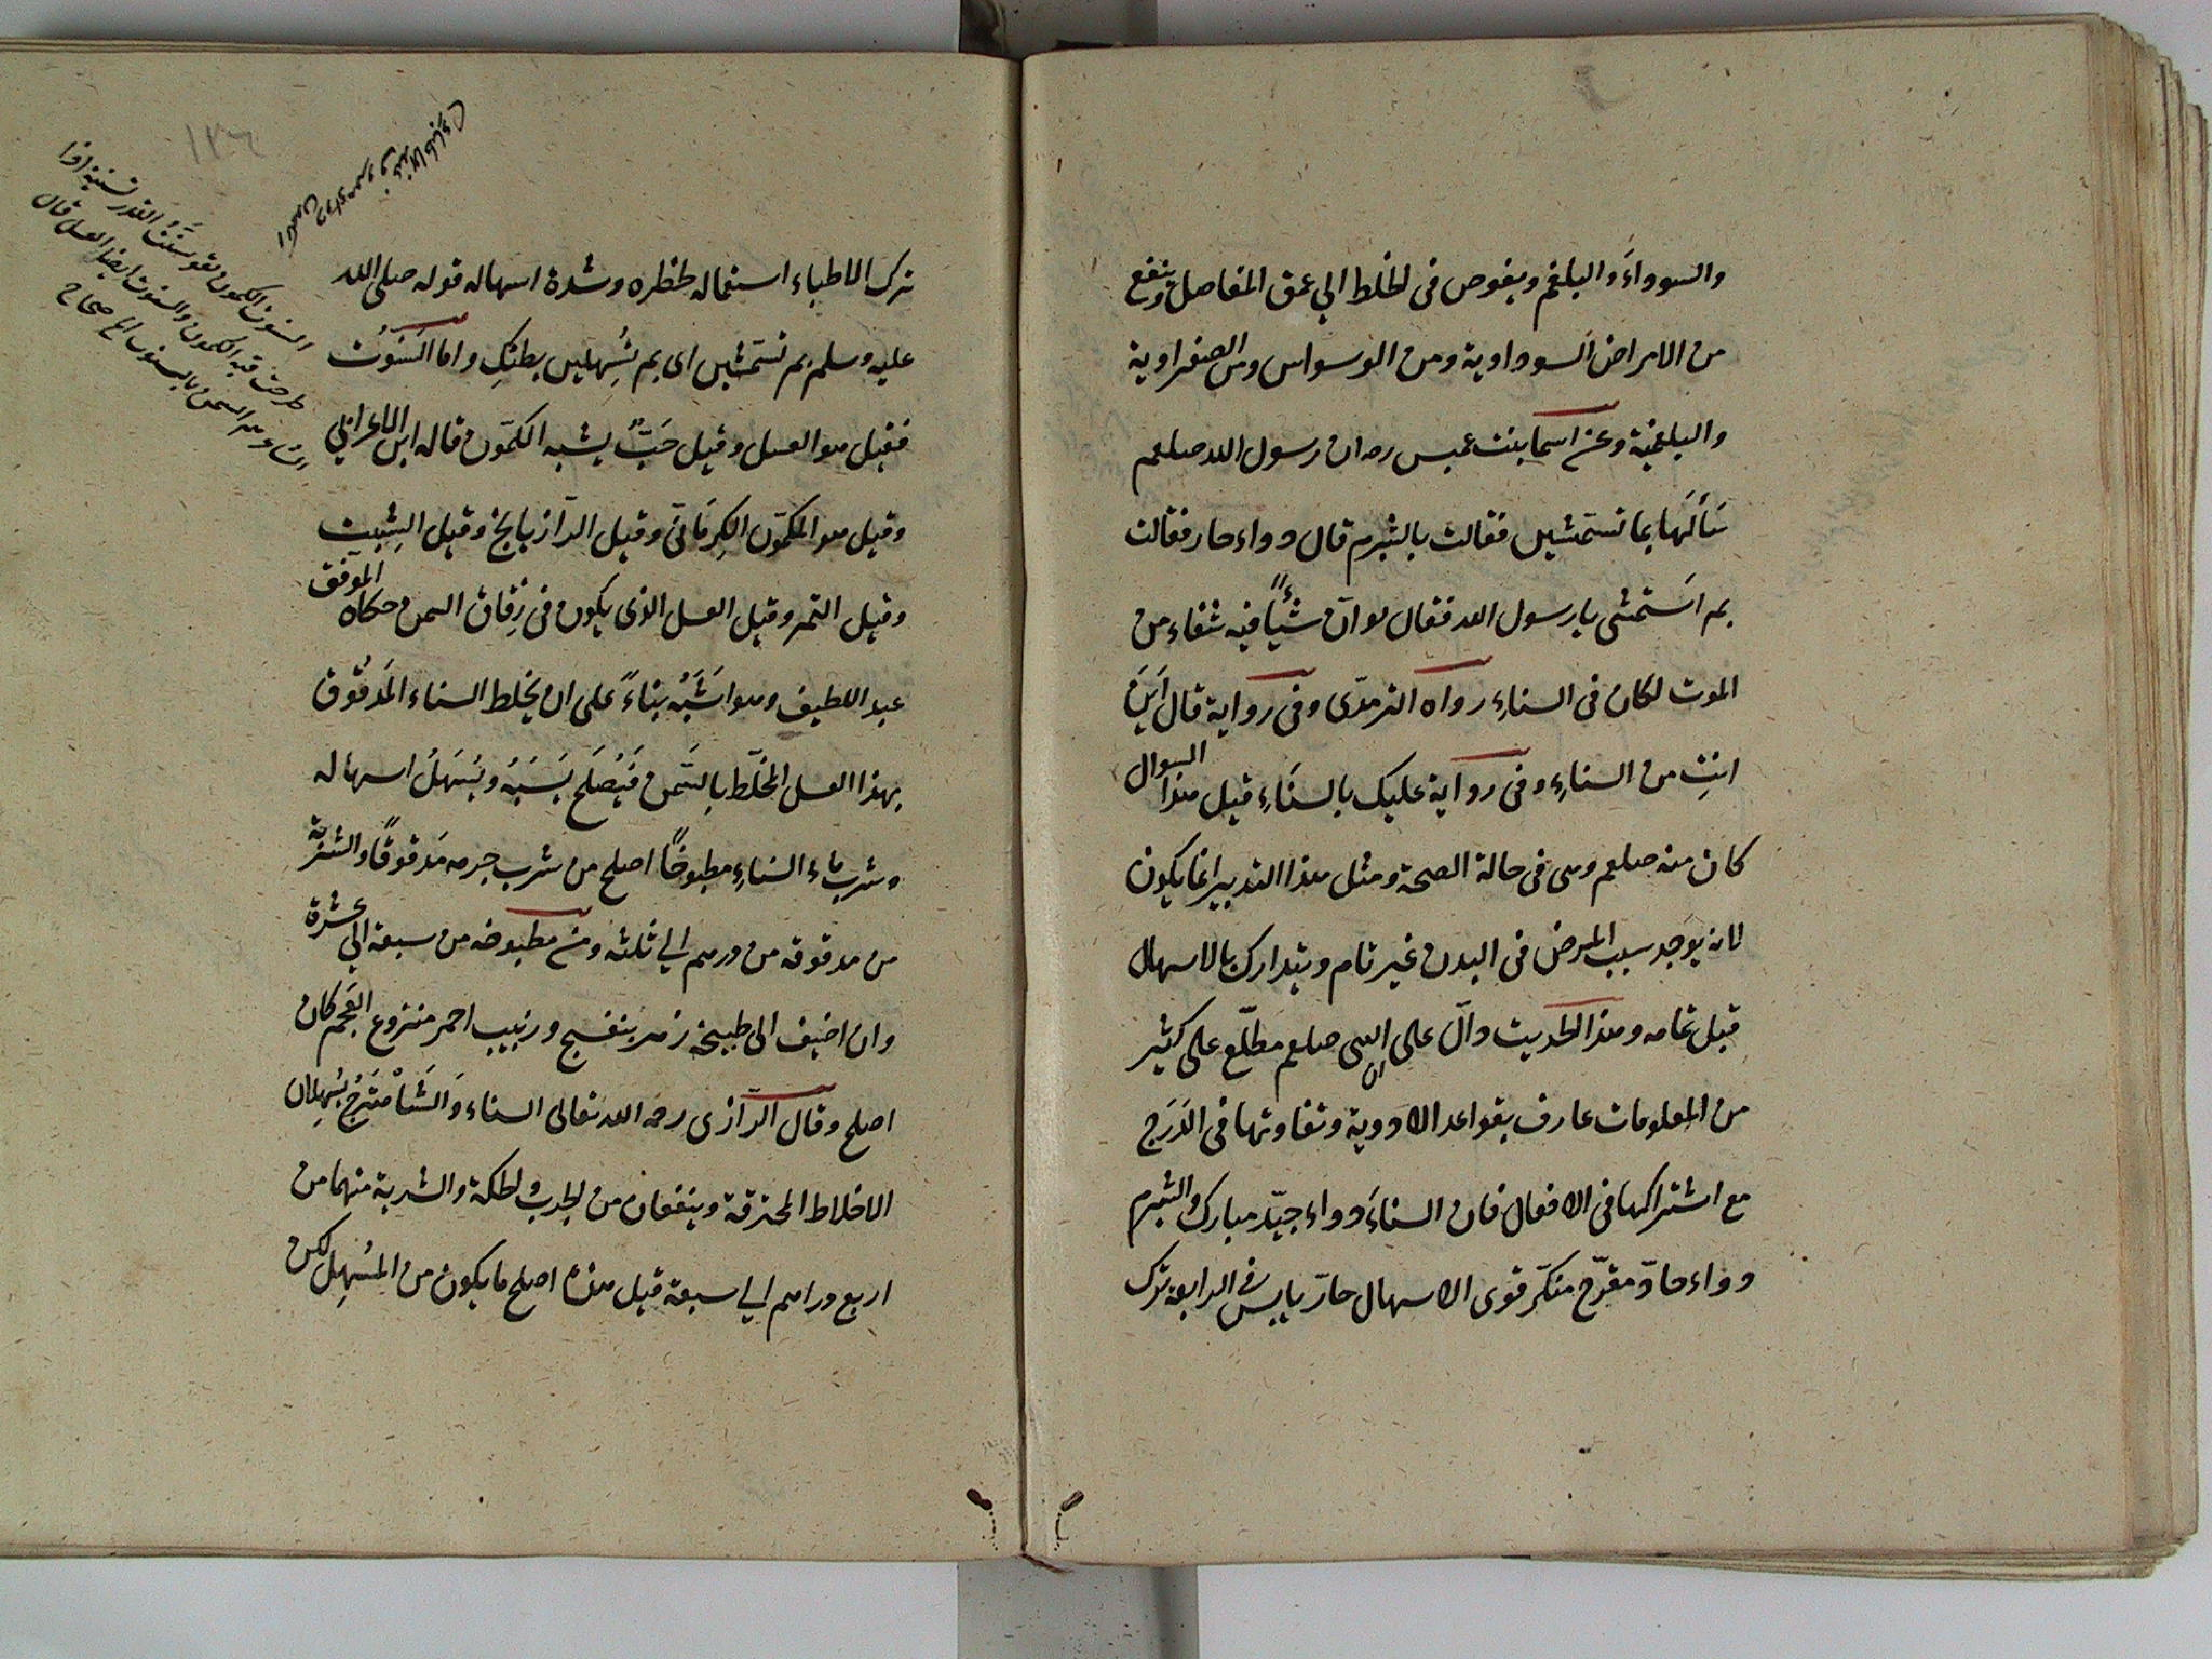 والسوداءَ والبلغم ويغوص فى الخلط الي عمق المفاصل وينفع
من الامراض السوداوية ومن الوسواس ومن الصفراوية
والبلغمية وعن اسما بنت عميس رہ ان رسول الله صلعم
سَألَها بما تستمشين فقالت بالشبرم قال دواء حار فقالت
بم اَستمشى يا رسول الله فقال لو اَن شيئًا فيه شفاء من
الموت لكان فى السناءِ رواه الترمذى وفى رواية قال اَين
انتِ من السناءِ وفى رواية عليك بالسنَاءِ قيل هذا السوال
كان منه صلعم وهى فى حالة الصحة ومثل هذا التدبير انما يكون
لانه يوجد سبب المرض فى البدن غير تام ويتدارك بالاسهال
قبل تمامه وهذا الحديث دالّ على ان النبى صلعم مطلّع على كثير
من المعلومات عارف بقواعد الادوية وتفاوتها فى الدَرَج
مع اشتراكها فى الافعال فان السناءَ دواء جيّد مبارك والشبرم
دواء حادّ مقرّح منكّر قوى الاسهال حارّ يابس فى الرابعة ترك
١٣٦
ترك الاطباء استعماله لخطره وشدة اسهاله قوله صلى الله
عليه وسلم بم تستَمشين اى بم تُسهلين بطنكِ واما السَنوت
فقيل هو العسل وقيل حَبٌّ يشبه الكمّون قاله ابن الاعرابى
وقيل هو الكمّون الكِرمَانىّ وقيل الرّازيانج وقيل الشِبِت
وقيل التمر وقيل العسل الذى يكون فى زِقاق السمن حكاه الموفق
عبد اللطيف وهو اشَبَهُ بناءً على ان يخلط السناء المَدقُوق
بهذا العسل المخلّط بالسَمن فَيُصلَح يَبَسَهُ ويُسَهلُ اسهاله
وشرب ماء السَناءِ مطبوخًا اصلح من شرب جرمه مَدقوقًا والشربة
من مدقوقه من درهم الي ثلثه ومن مطبوخه من سبعة الي عشرة
وان اضيف الى طبيخه زهر بنفسج وزبيب احمر منزوع العَجَم كان
اصلح وقال الرّازى رحمه الله تعالى السناء وَالشَاهتَرَج يُسهلان
الاخلاط المحترقة وينفعان من الجرب والحكة والشربة منهما من
اربع دراهم الي سبعة قيل هذه اصلح ما يكون من المُسهِل لكن
السنوت الكمون وتقول سَنَّتُّ القدر تسنيتا اذا
طرحت فيه الكمون والسنوت ايضا العسل قال